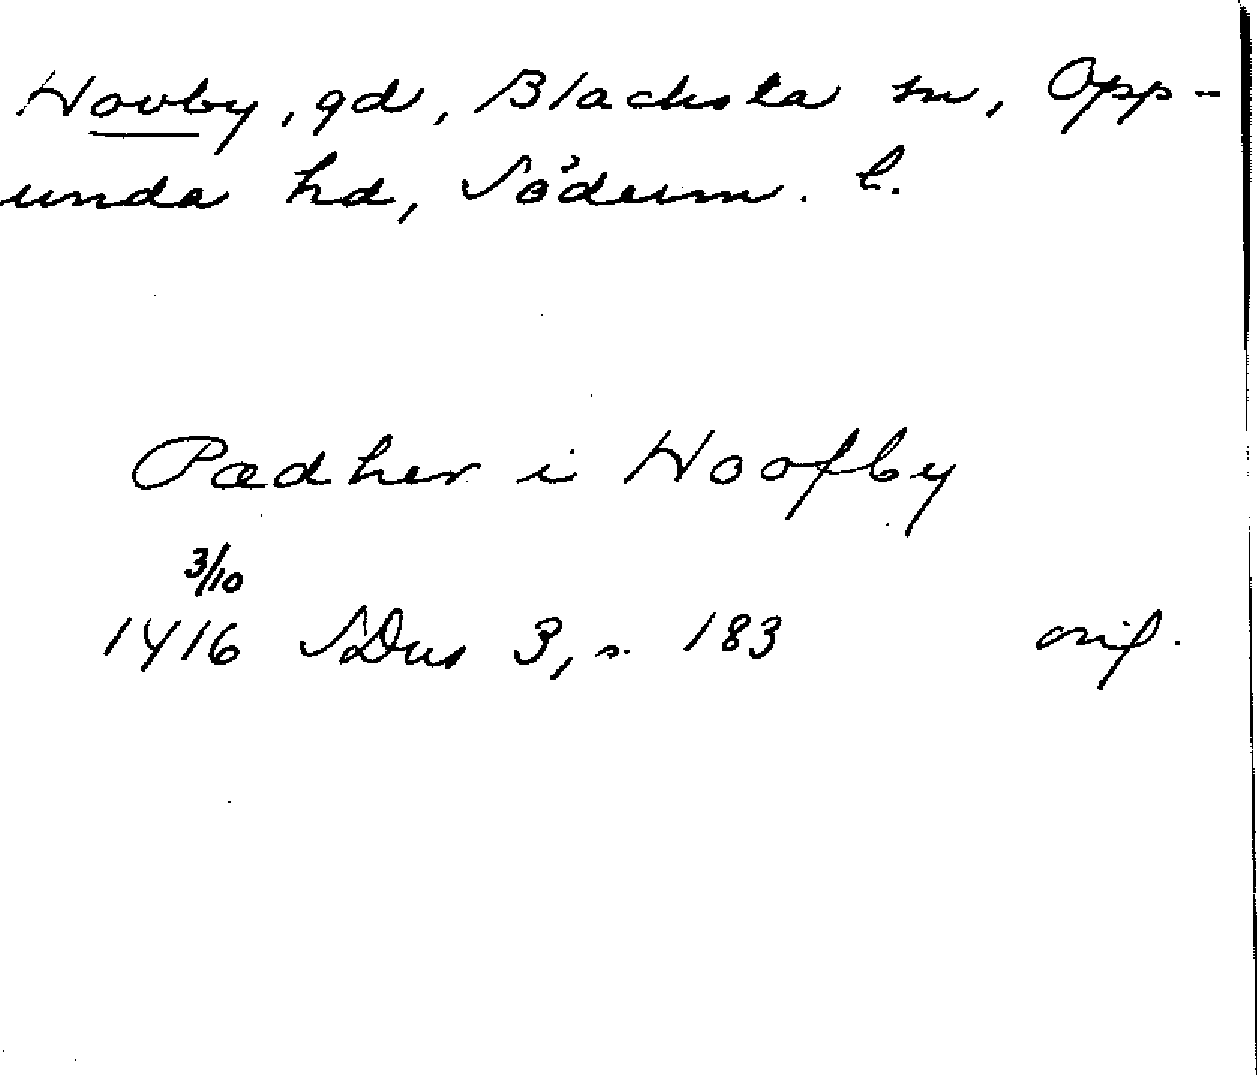 Hovby, gd, Blacksta sn, Opp-
unda hd, Söderm. l.
Pædher i Hoofby
3/10
1416 SDns 3, s. 183 orig.